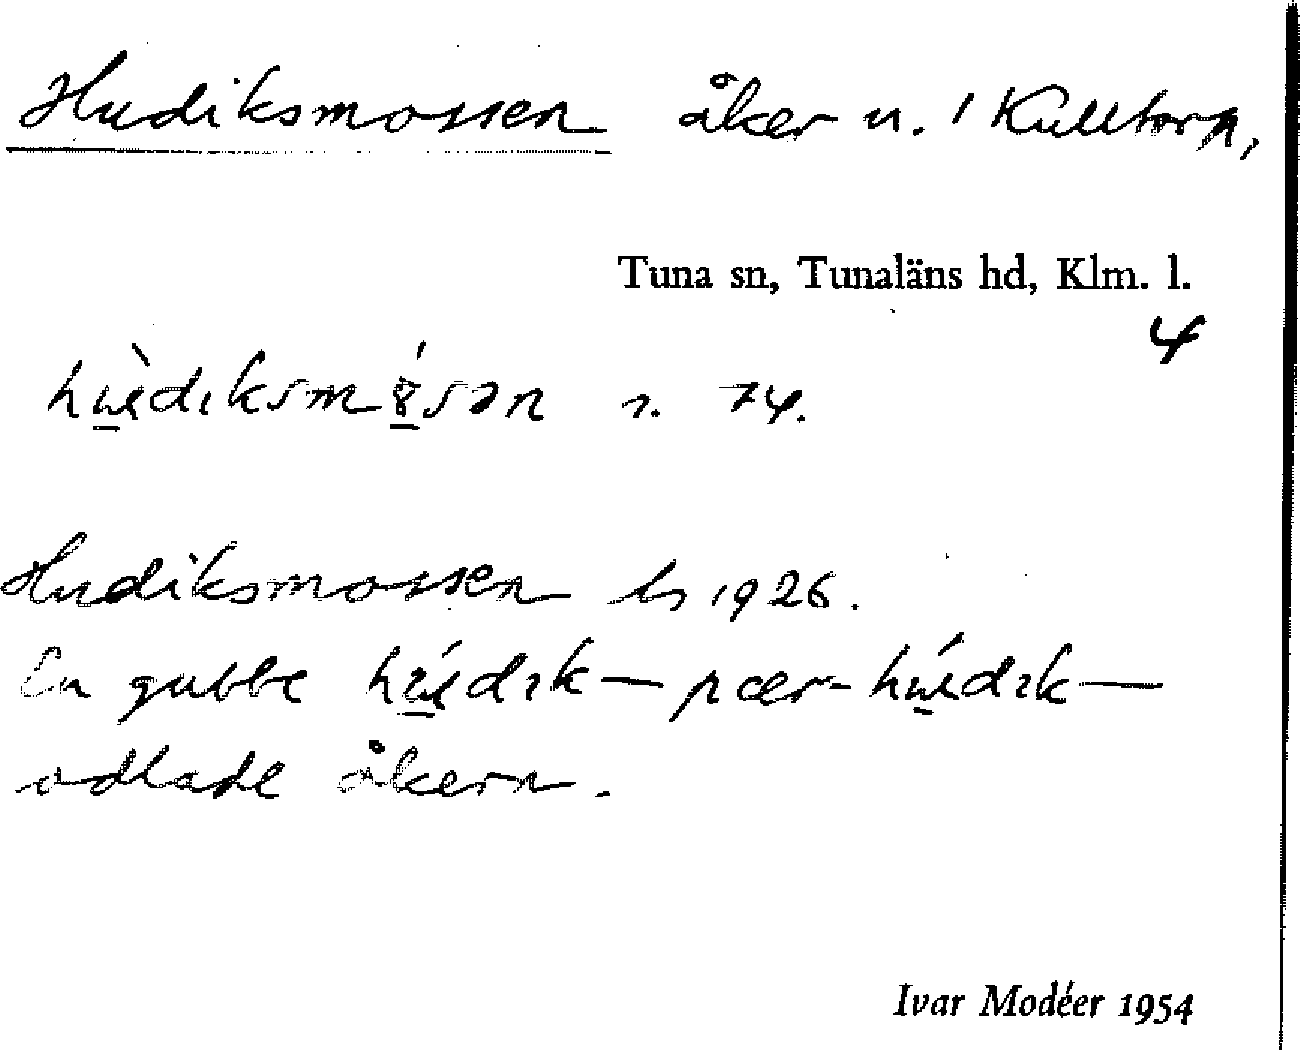 Hudiksmossen åker u. 1 Kulltorp,
Tuna sn, Tunaläns hd, Klm. l.
4
r. 74.
Hudiksmossen ls 1926.
En gubbe pær-
odlade åkern.
Ivar Modéer 1954